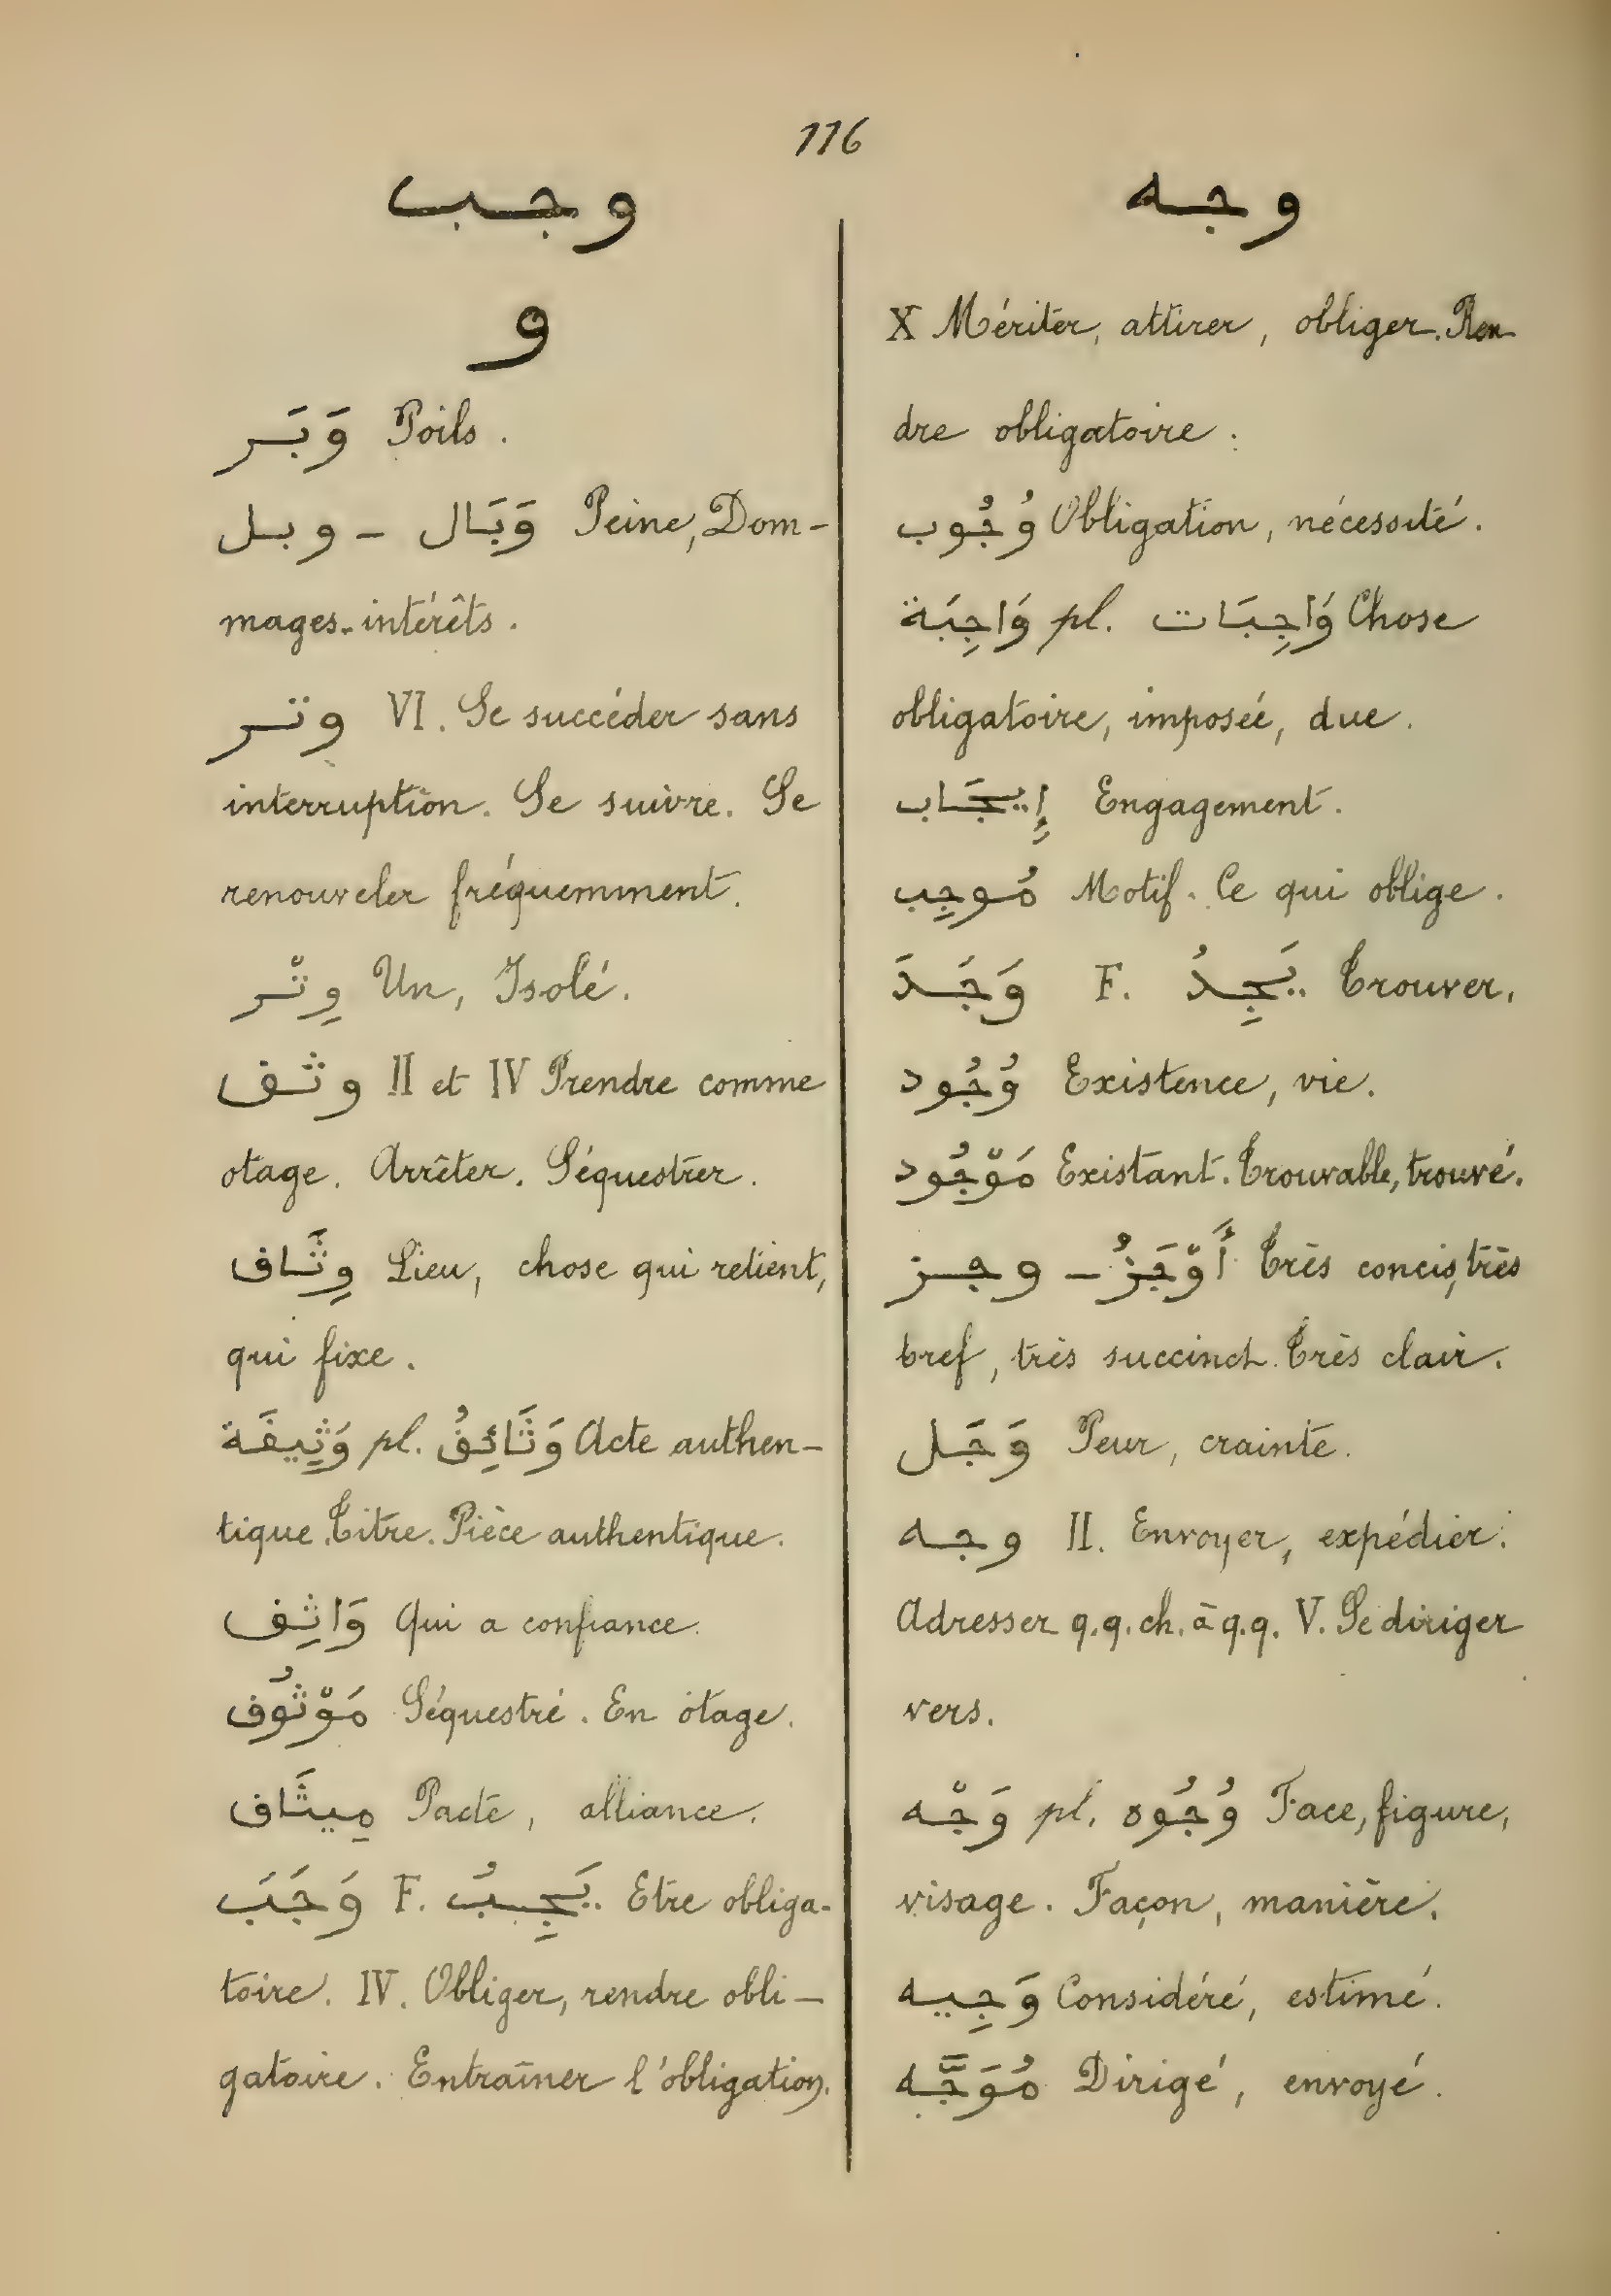 116
وجب
وجه
و
وَبَر Poils.
وبل - وَبَال Peine, Dom-
mages-intérêts.
وتر VI. Se succéder sans
interruption. Se suivre. Se
renouveler fréquemment.
وِتْر Un, Isolé.
وثق II et IV Prendre comme
otage. Arrêter. Séquestrer.
وِثَاق Lieu, chose qui retient,
qui fixe.
وَثِيقَة pl. وَثَائِقُ Acte authen-
tique. Titre. Pièce authentique.
وَاثِق Qui a confiance.
مَوْثُوق Séquestré. En otage.
مِيثَاق Pacte, alliance.
وَجَبَ F. يَجِبُ Etre obliga-
toire. IV. Obliger, rendre obli-
gatoire. Entraîner l'obligation.
X Mériter, attirer, obliger. Ren-
dre obligatoire.
وُجُوب Obligation, nécessité.
وَاجِبَة pl. وَاجِبَات Chose
obligatoire, imposée, due.
إِيجَاب Engagement.
مُوجِب Motif. Ce qui oblige.
وَجَدَ F. يَجِدُ Trouver.
وُجُود Existence, vie.
مَوْجُود Existant. Trouvable, trouvé.
وجز - أَوْجَزُ Très concis, très
bref, très succinct. Très clair.
وَجَل Peur, crainte.
وجه II. Envoyer, expédier.
Adresser q.q. ch. à q.q. V. Se diriger
vers.
وَجْه pl. وُجُوه Face, figure,
visage. Façon, manière.
وَجِيه Considéré, estimé.
مُوَجَّه Dirigé, envoyé.